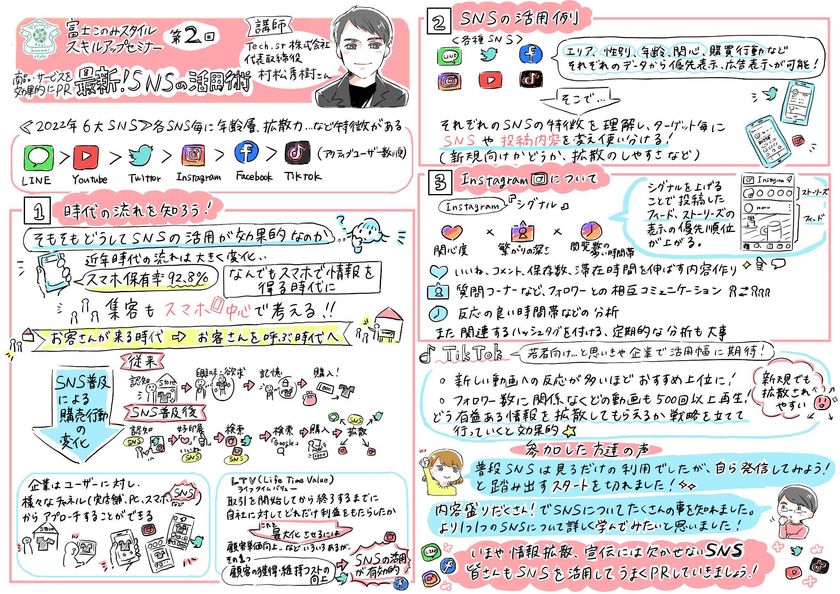 富士このみスタイル
スキルアップセミナー
第2回
講師
Tech.sr株式会社
代表取締役
村松彦樹さん
商品・サービスを
効果的にPR
最新！SNSの活用術
≪2022年6大SNS≫各SNS毎に年齢層、拡散力…など特徴がある
LINE > Youtube > Twitter > Instagram > Facebook > TikTok (アクティブユーザー数順)
1 時代の流れを知ろう！
そもそもどうしてSNSの活用が効果的なのか
近年時代の流れは大きく変化..
スマホ保有率92.8%
なんでもスマホで情報を
得る時代に
集客もスマホ中心で考える!!
お客さんが来る時代 ⇒ お客さんを呼ぶ時代へ
SNS普及
による
購売行動の
変化
従来
認知
興味・欲求
記憶
購入！
SNS普及後
認知
好印象
検索
検索
購入
拡散
いいね
Google
SNS
企業はユーザーに対し、
様々なチャネル(実店舗、PC、スマホ、SNS)
からアプローチすることができる
LTV(Life Time Value)
ライフタイムバリュー
取引を開始してから終了するまでに
自社に対してどれだけ利益をもたらったか
これを
最大化させるには
顧客単価向上…などいろいろあるが、
その1つ
顧客の獲得・維持コストの
向上
SNSの活用
が有効的
2 SNSの活用例
<各種SNS>
LINE
エリア、性別、年齢、関心、購買行動など
それぞれのデータから優先表示、広告表示が可能！
そこで…
それぞれのSNSの特徴を理解し、ターゲット毎に
SNSや投稿内容を変え使い分ける！
(新規向けかどうか、拡散のしやすさなど)
3 Instagramについて
Instagram『シグナル』
関心度 × 繋がりの深さ × 閲覧数の多い時間帯
シグナルを上げる
ことで投稿した
フィード、ストーリーズの
表示の優先順位
が上がる。
Instagram
ストーリーズ
フィード
いいね、コメント、保存数、滞在時間を伸ばす内容作り
質問コーナーなど、フォロワーとの相互コミュニケーション
反応の良い時間帯などの分析
また関連するハッシュタグを付ける、定期的な分析も大事
TikTok
若者向け…と思いきや企業で活用幅に期待！
○ 新しい動画への反応が多いほどおすすめ上位に！
○ フォロワー数に関係なくどの動画も500回以上再生！
どう有益ある情報を拡散してもらえるか戦略を立てて
行っていくと効果的
新規でも
拡散され
やすい
参加した方達の声
普段SNSは見るだけの利用でしたが、自ら発信してみよう！
と踏み出すスタートを切れました！
内容盛りだくさん！でSNSについてたくさんの事を知れました。
より1つ1つのSNSについて詳しく学んでみたいと思いました！
いまや情報拡散、宣伝には欠かせないSNS
皆さんもSNSを活用してうまくPRしていきましょう！